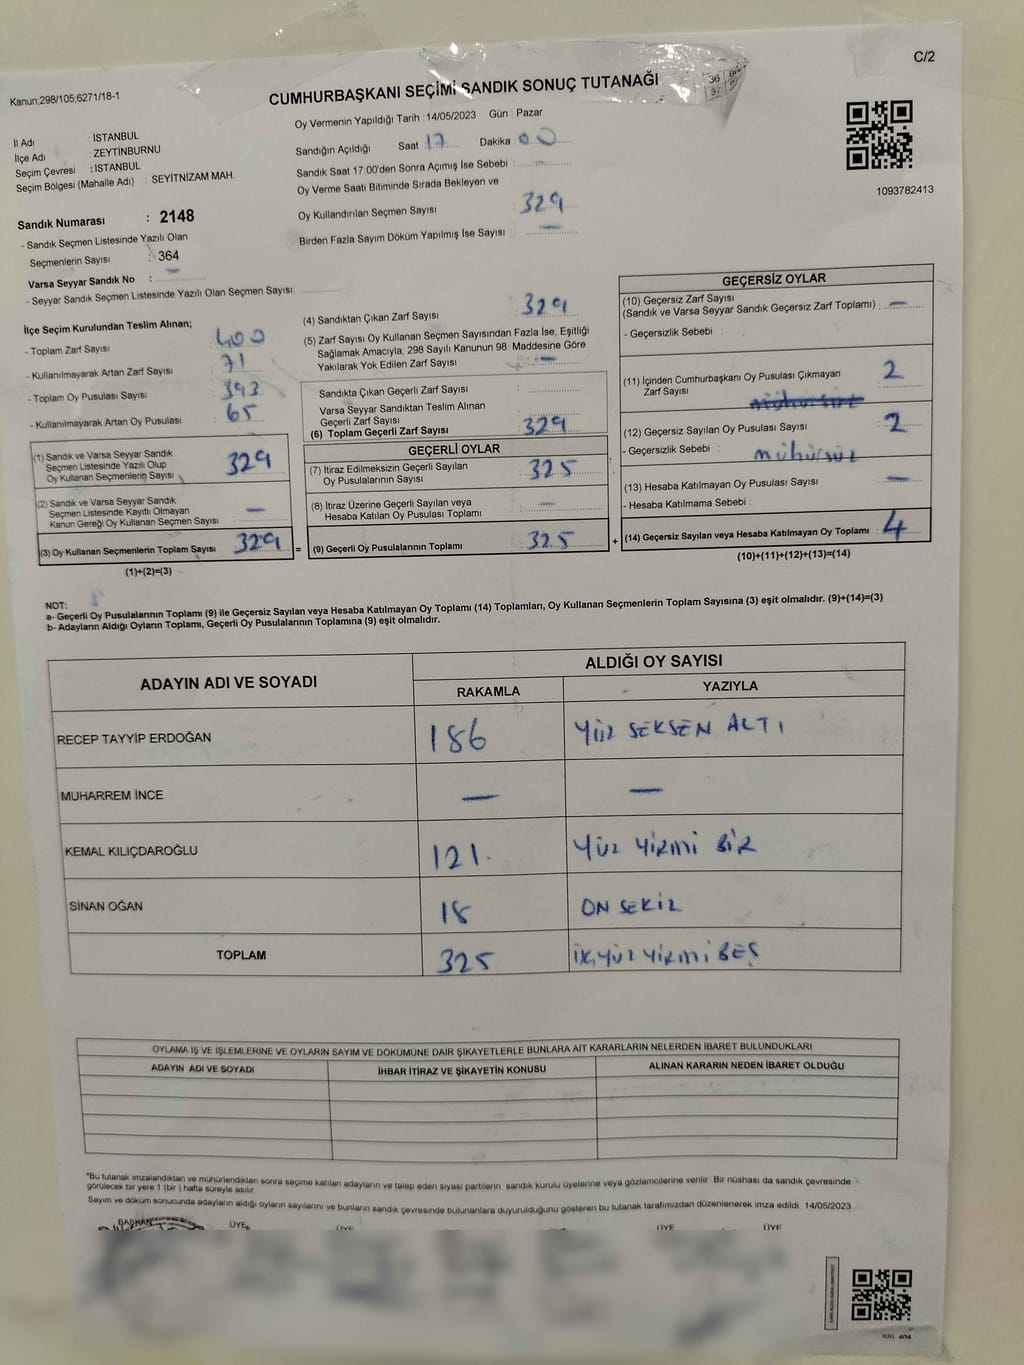 C/2
Kanun;298/105;6271/18-1
CUMHURBAŞKANI SEÇİMİ SANDIK SONUÇ TUTANAĞI
Oy Vermenin Yapıldığı Tarih : 14/05/2023 Gün : Pazar
İl Adı : İSTANBUL
İlçe Adı : ZEYTİNBURNU
Seçim Çevresi : İSTANBUL
Seçim Bölgesi (Mahalle Adı) : SEYİTNİZAM MAH.
Sandığın Açıldığı Saat 17 Dakika 00
Sandık Saat 17:00'den Sonra Açımış İse Sebebi :
Oy Verme Saati Bitiminde Sırada Bekleyen ve
Oy Kullandırılan Seçmen Sayısı : 329
Birden Fazla Sayım Döküm Yapılmış İse Sayısı : —
1093782413
Sandık Numarası : 2148
- Sandık Seçmen Listesinde Yazılı Olan
Seçmenlerin Sayısı : 364
Varsa Seyyar Sandık No : —
- Seyyar Sandık Seçmen Listesinde Yazılı Olan Seçmen Sayısı:
İlçe Seçim Kurulundan Teslim Alınan;
- Toplam Zarf Sayısı : 400
- Kullanılmayarak Artan Zarf Sayısı : 71
- Toplam Oy Pusulası Sayısı : 393
- Kullanılmayarak Artan Oy Pusulası : 65
(1) Sandık ve Varsa Seyyar Sandık
Seçmen Listesinde Yazılı Olup
Oy Kullanan Seçmenlerin Sayısı 329
(2) Sandık ve Varsa Seyyar Sandık
Seçmen Listesinde Kayıtlı Olmayan
Kanun Gereği Oy Kullanan Seçmen Sayısı —
(3) Oy Kullanan Seçmenlerin Toplam Sayısı 329
(1)+(2)=(3)
(4) Sandıktan Çıkan Zarf Sayısı : 329
(5) Zarf Sayısı Oy Kullanan Seçmen Sayısından Fazla İse, Eşitliği
Sağlamak Amacıyla, 298 Sayılı Kanunun 98. Maddesine Göre
Yakılarak Yok Edilen Zarf Sayısı : —
Sandıkta Çıkan Geçerli Zarf Sayısı :
Varsa Seyyar Sandıktan Teslim Alınan
Geçerli Zarf Sayısı :
(6) Toplam Geçerli Zarf Sayısı : 329
GEÇERLİ OYLAR
(7) İtiraz Edilmeksizin Geçerli Sayılan
Oy Pusulalarının Sayısı : 325
(8) İtiraz Üzerine Geçerli Sayılan veya
Hesaba Katılan Oy Pusulası Toplamı : —
= (9) Geçerli Oy Pusulalarının Toplamı : 325 +
GEÇERSİZ OYLAR
(10) Geçersiz Zarf Sayısı
(Sandık ve Varsa Seyyar Sandık Geçersiz Zarf Toplamı) : —
- Geçersizlik Sebebi :
(11) İçinden Cumhurbaşkanı Oy Pusulası Çıkmayan
Zarf Sayısı : 2
mühürsüz
(12) Geçersiz Sayılan Oy Pusulası Sayısı : 2
- Geçersizlik Sebebi : mühürsüz
(13) Hesaba Katılmayan Oy Pusulası Sayısı : —
- Hesaba Katılmama Sebebi :
(14) Geçersiz Sayılan veya Hesaba Katılmayan Oy Toplamı : 4
(10)+(11)+(12)+(13)=(14)
NOT:
a- Geçerli Oy Pusulalarının Toplamı (9) ile Geçersiz Sayılan veya Hesaba Katılmayan Oy Toplamı (14) Toplamları, Oy Kullanan Seçmenlerin Toplam Sayısına (3) eşit olmalıdır. (9)+(14)=(3)
b- Adayların Aldığı Oyların Toplamı, Geçerli Oy Pusulalarının Toplamına (9) eşit olmalıdır.
ADAYIN ADI VE SOYADI ALDIĞI OY SAYISI
RAKAMLA YAZIYLA
RECEP TAYYİP ERDOĞAN 186 YÜZ SEKSEN ALTI
MUHARREM İNCE — —
KEMAL KILIÇDAROĞLU 121. YÜZ YİRMİ BİR
SİNAN OĞAN 18 ON SEKİZ
TOPLAM 325 YİRMİ BEŞ
OYLAMA İŞ VE İŞLEMLERİNE VE OYLARIN SAYIM VE DÖKÜMÜNE DAİR ŞİKAYETLERLE BUNLARA AİT KARARLARIN NELERDEN İBARET BULUNDUKLARI
ADAYIN ADI VE SOYADI İHBAR İTİRAZ VE ŞİKAYETİN KONUSU ALINAN KARARIN NEDEN İBARET OLDUĞU
*Bu tutanak imzalandıktan ve mühürlendikten sonra seçime katılan adayların ve talep eden siyasi partilerin sandık kurulu üyelerine veya gözlemcilerine verilir. Bir nüshası da sandık çevresinde
görülecek bir yere 1 (bir) hafta süreyle asılır.
Sayım ve döküm sonucunda adayların aldığı oyların sayılarını ve bunların sandık çevresinde bulunanlara duyurulduğunu gösteren bu tutanak tarafımızdan düzenlenerek imza edildi. 14/05/2023
BAŞKAN ÜYE ÜYE ÜYE ÜYE